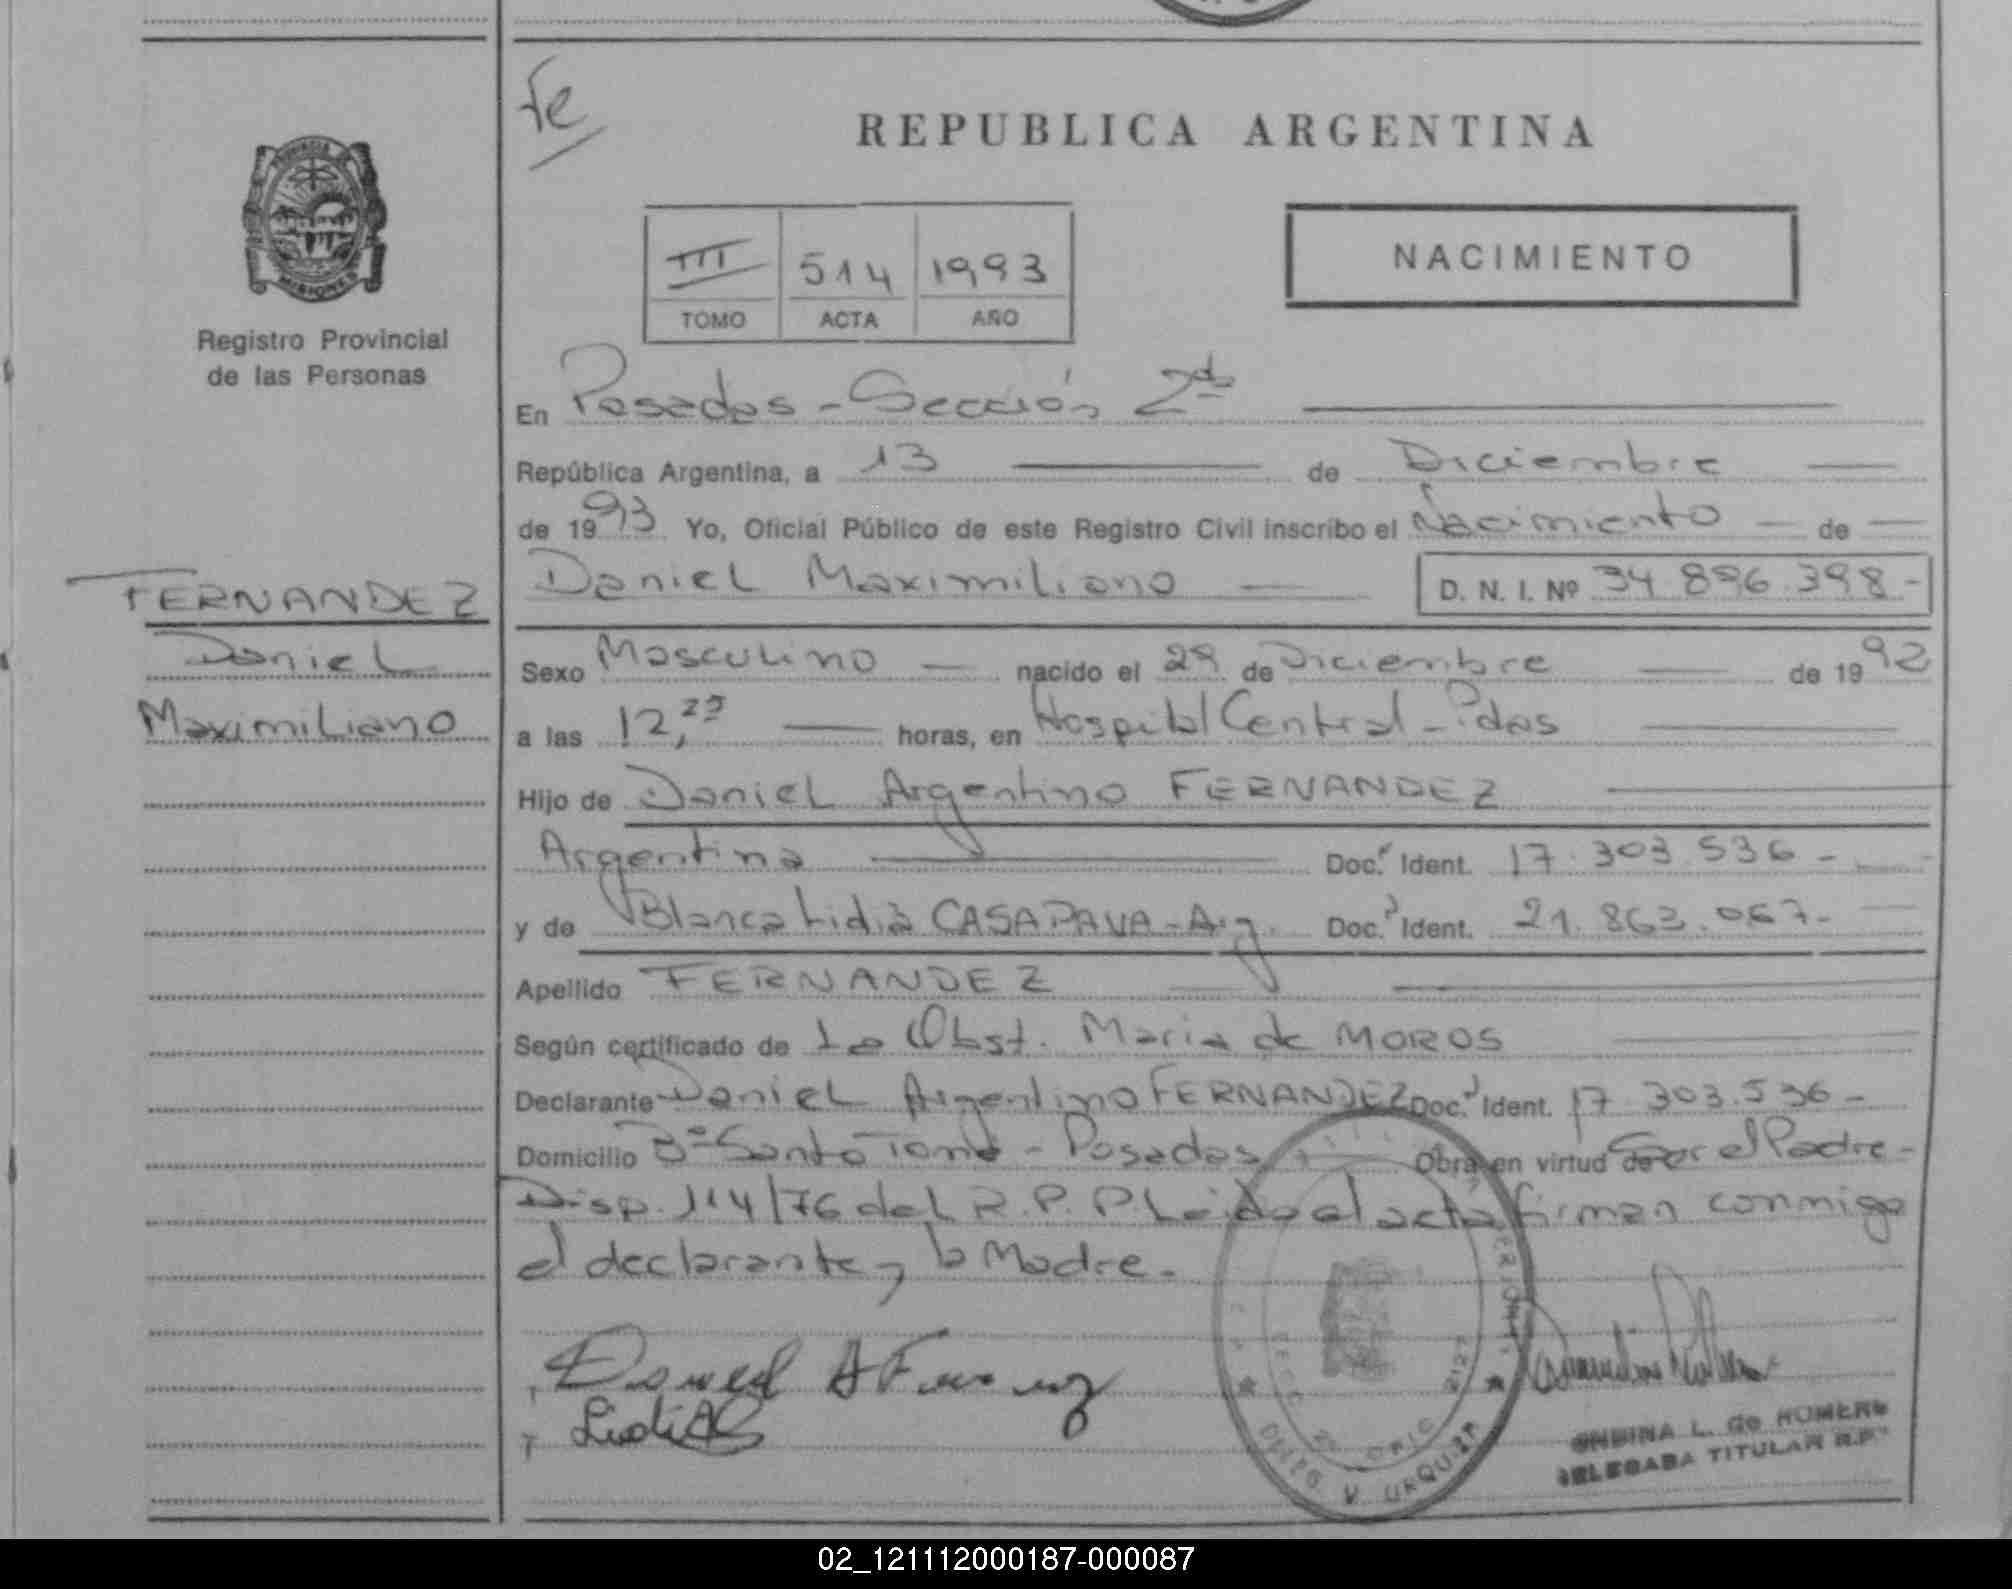 Te
REPUBLICA ARGENTINA
PROVINCIA DE MISIONES
Registro Provincial
de las Personas
III 514 1993
TOMO ACTA AÑO
NACIMIENTO
En Posadas - Sección 2da
República Argentina, a 13 de Diciembre
de 1993 Yo, Oficial Público de este Registro Civil inscribo el Nacimiento de
Daniel Maximiliano D. N. I. Nº 34.896.398-
FERNANDEZ
Daniel
Maximiliano
Sexo Masculino nacido el 29 de Diciembre de 1992
a las 12, horas, en Hospital Central - Pdas
Hijo de Daniel Argentino FERNANDEZ
Argentina Doc.º Ident. 17.303.536-
y de Blanca Lidia CASAPAVA - Arg. Doc.º Ident. 21.863.067-
Apellido FERNANDEZ
Según certificado de La Obst. Maria de MOROS
Declarante Daniel Argentino FERNANDEZ Doc.º Ident. 17.303.536-
Domicilio Bº Santo Tomé - Posadas Obra en virtud de Ser el Padre-
Disp. 114/76 del R.P.P Leida el acta firman conmigo
el declarante y la Madre.
ONDINA L. de ROMERO
DELEGADA TITULAR R.P.
02_121112000187-000087